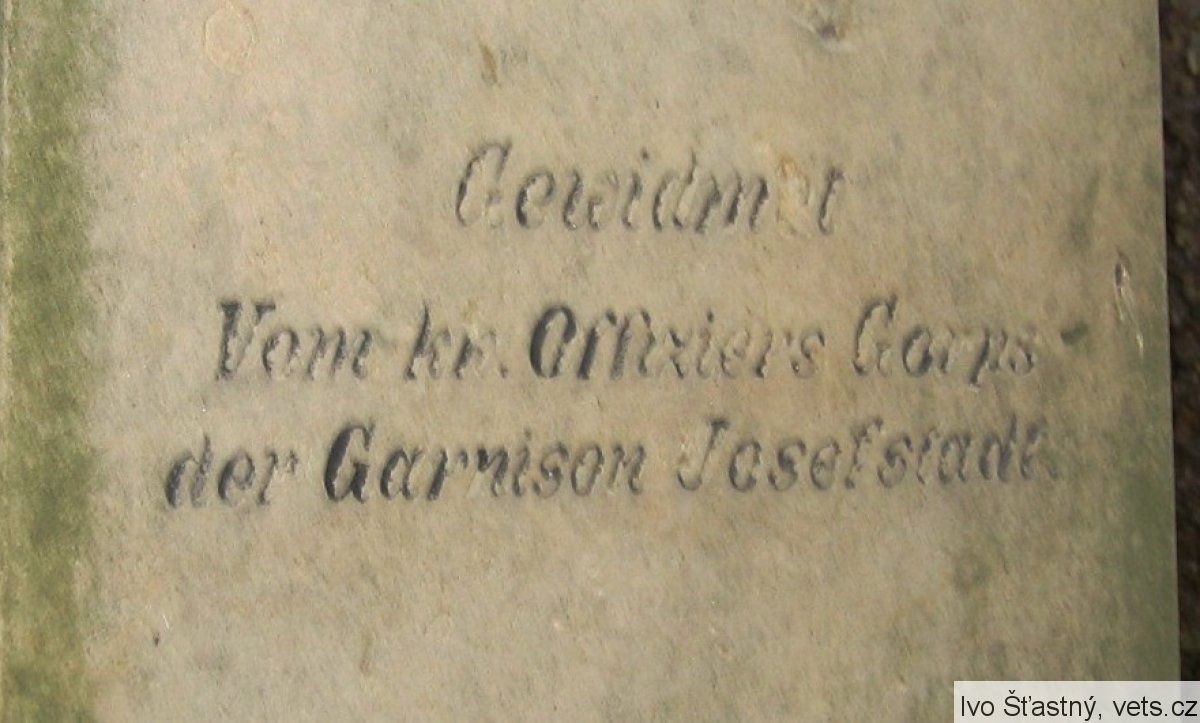 Gewidmet
Vom kr. Offiziers Corps
der Garnison Josefstadt.
Ivo Šťastný, vets.cz